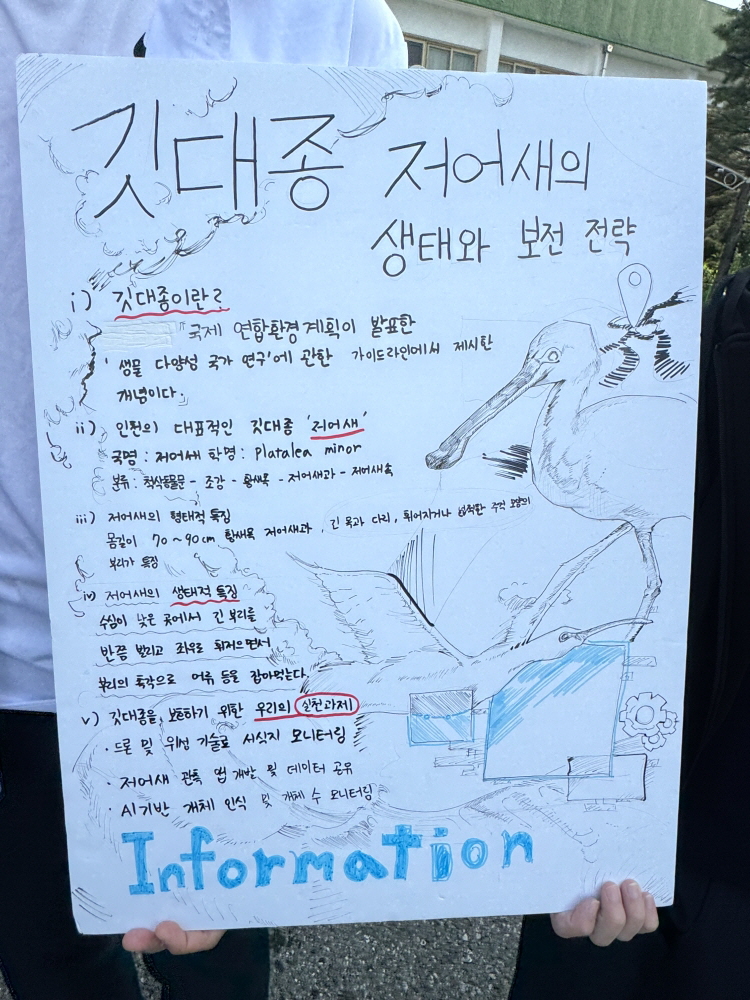 깃대종 저어새의
생태와 보전 전략
i) 깃대종이란?
국제 연합환경계획이 발표한
'생물 다양성 국가 연구'에 관한 가이드라인에서 제시한
개념이다.
ii) 인천의 대표적인 깃대종 '저어새'
국명 : 저어새 학명 : Platalea minor
분류 : 척삭동물문 - 조강 - 황새목 - 저어새과 - 저어새속
iii) 저어새의 형태적 특징
몸길이 70~90cm 황새목 저어새과, 긴 목과 다리, 튀어지거나 넓적한 주걱 모양의
부리가 특징
iv) 저어새의 생태적 특징
수심이 낮은 곳에서 긴 부리를
반쯤 벌리고 좌우로 휘저으면서
부리의 촉각으로 어류 등을 잡아먹는다.
v) 깃대종을 보호하기 위한 우리의 실천과제
· 드론 및 위성 기술로 서식지 모니터링
· 저어새 관측 앱 개발 및 데이터 공유
· AI기반 개체 인식 및 개체 수 모니터링
Information